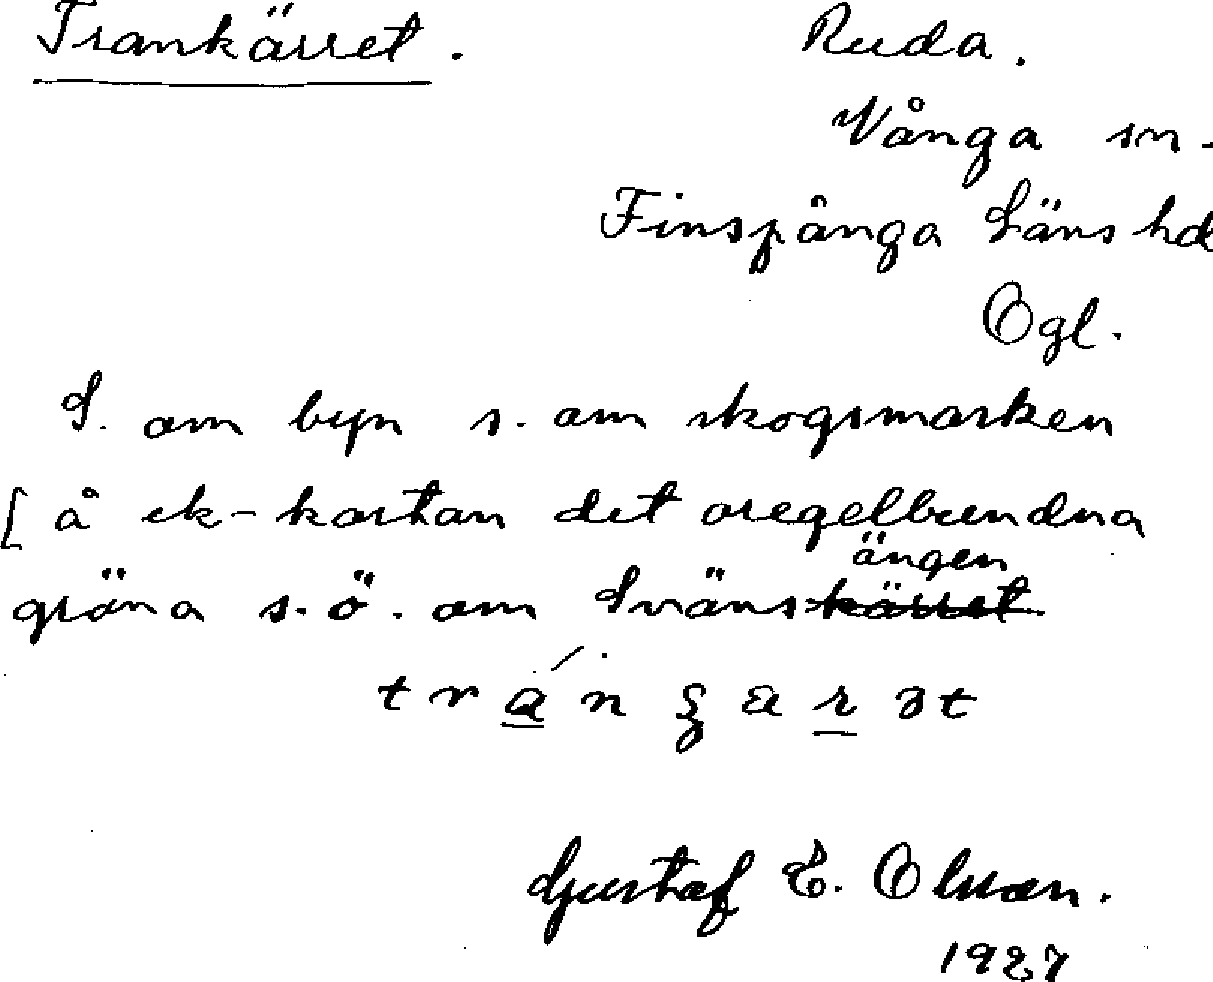 Trankärret. Ruda.
Vånga sn.
Finspånga Läns hd
Ögl.
S. om byn s. om skogsmarken
[ å ek-kartan det oregelbundna
ängen
gröna s.ö. om Svänskärret
Gustaf E. Olsson.
1927